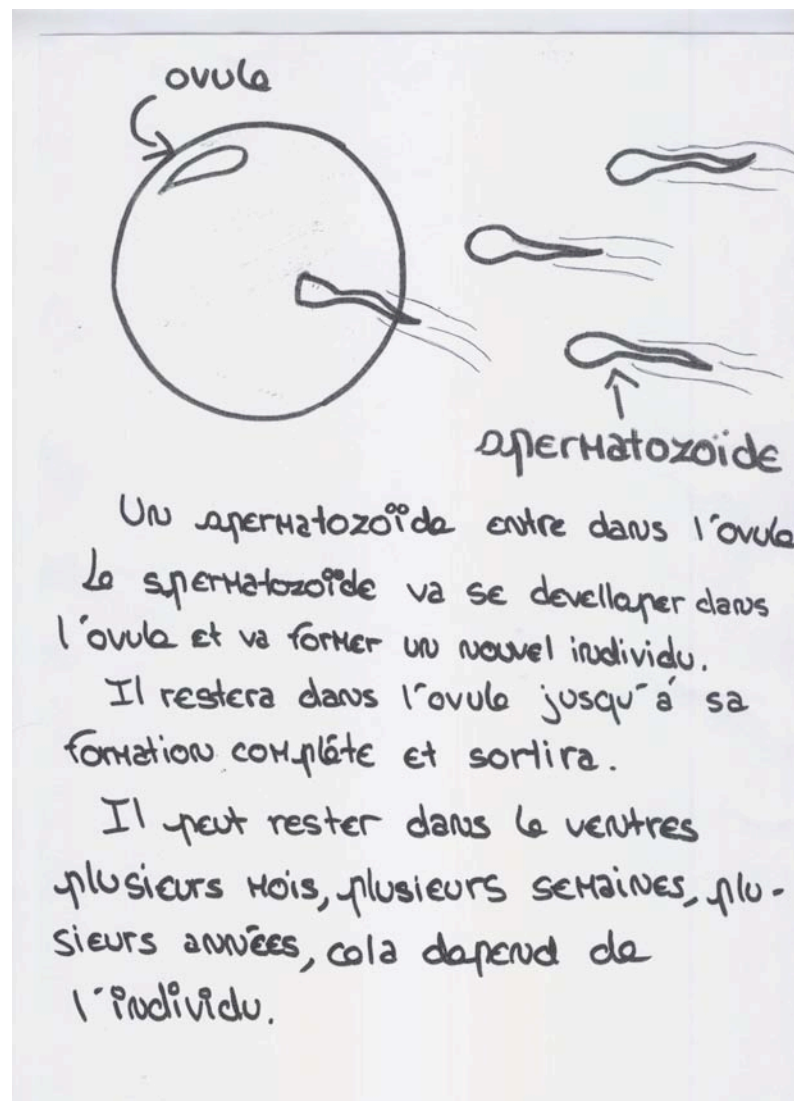 ovule
spermatozoïde
Un spermatozoïde entre dans l'ovule
Le spermatozoïde va se develloper dans
l'ovule et va former un nouvel individu.
Il restera dans l'ovule jusqu'à sa
formation compléte et sortira.
Il peut rester dans le ventres
plusieurs mois, plusieurs semaines, plu-
sieurs années, cela depend de
l'individu.